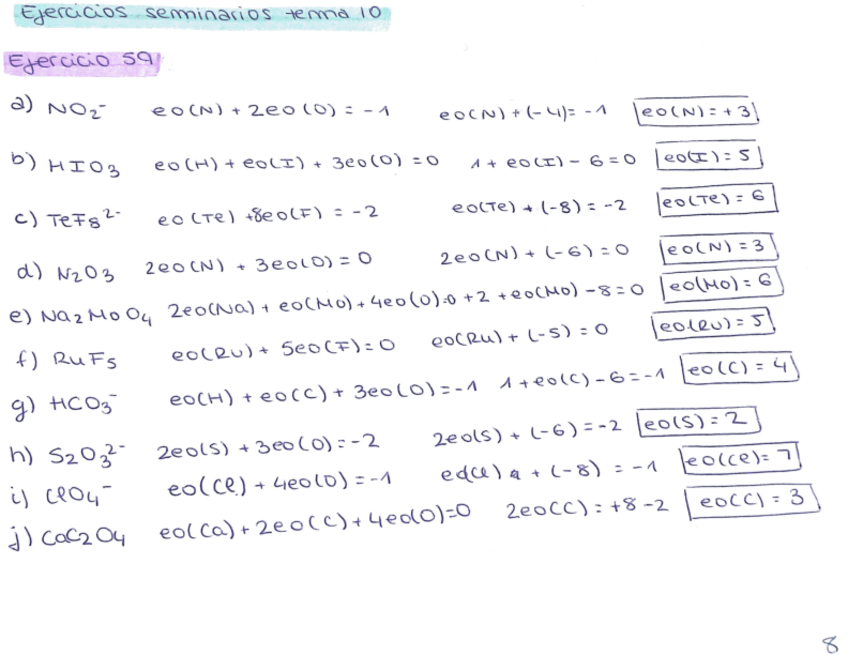 Ejercicios seminarios tema 10
Ejercicio 59
a) NO₂⁻ eo(N) + 2eo(O) = -1 eo(N) + (-4) = -1 eo(N) = +3
b) HIO₃ eo(H) + eo(I) + 3eo(O) = 0 1 + eo(I) - 6 = 0 eo(I) = 5
c) TeF₈²⁻ eo(Te) + 8eo(F) = -2 eo(Te) + (-8) = -2 eo(Te) = 6
d) N₂O₃ 2eo(N) + 3eo(O) = 0 2eo(N) + (-6) = 0 eo(N) = 3
e) Na₂MoO₄ 2eo(Na) + eo(Mo) + 4eo(O) = 0 +2 + eo(Mo) - 8 = 0 eo(Mo) = 6
f) RuF₅ eo(Ru) + 5eo(F) = 0 eo(Ru) + (-5) = 0 eo(Ru) = 5
g) HCO₃⁻ eo(H) + eo(C) + 3eo(O) = -1 1 + eo(C) - 6 = -1 eo(C) = 4
h) S₂O₃²⁻ 2eo(S) + 3eo(O) = -2 2eo(S) + (-6) = -2 eo(S) = 2
i) ClO₄⁻ eo(Cl) + 4eo(O) = -1 eo(Cl) + (-8) = -1 eo(Cl) = 7
j) CaC₂O₄ eo(Ca) + 2eo(C) + 4eo(O) = 0 2eo(C) = +8 - 2 eo(C) = 3
8